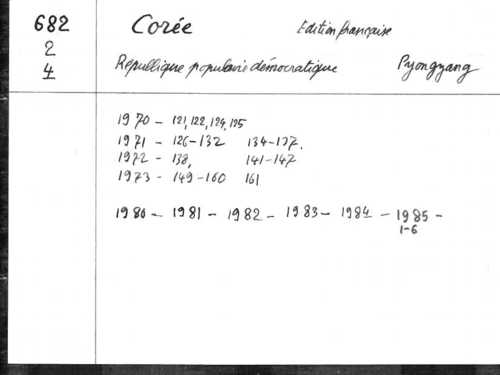 682 Corée Edition française
2
4 République populaire démocratique Pyongyang
1970 - 121, 122, 124, 125
1971 - 126-132 134-137.
1972 - 138, 141-147
1973 - 149-160 161
1980 - 1981 - 1982 - 1983 - 1984 - 1985 -
1-6